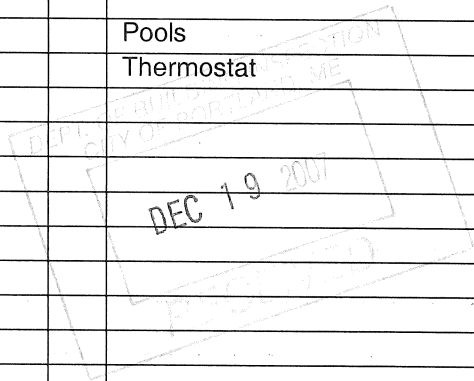 Pools
Thermostat
DEPT. OF BUILDING INSPECTION
CITY OF PORTLAND, ME
DEC 19 2007
RECEIVED